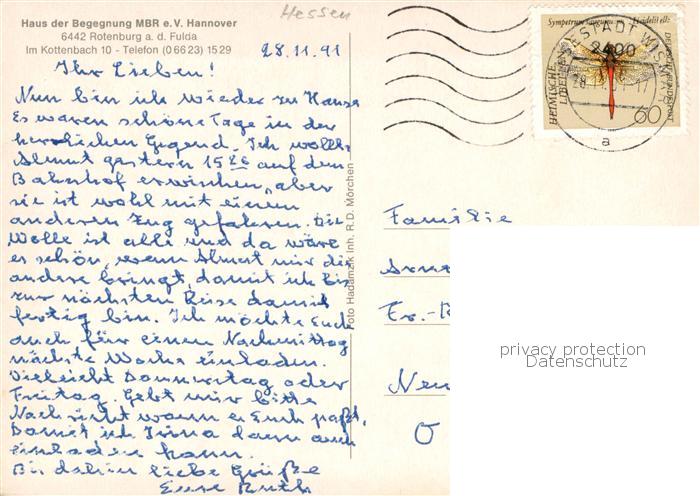 Haus der Begegnung MBR e.V. Hannover
6442 Rotenburg a. d. Fulda
Im Kottenbach 10 - Telefon (0 66 23) 15 29
Hessen
28.11.91
Ihr Lieben!
Nun bin ich wieder zu Hause
Es waren schöne Tage in der
herrlichen Gegend. Ich wollte
Almut gestern 15 26 auf dem
Bahnhof erwischen, aber
sie ist wohl mit einem
anderen Zug gefahren. Die
Wolle ist alle und da wäre
es schön, wenn Almut mir die
andere bringt, damit ich bis
zur nächsten Reise damit
fertig bin. Ich möchte Euch
auch für einen Nachmittag
nächste Woche einladen.
Vielleicht Donnerstag oder
Freitag. Gebt mir bitte
Nachricht wann es Euch paßt,
Damit ich Irma dann auch
einladen kann.
Bis dahin liebe Grüße
Eure Ruth
Foto Hadamzik Inh. R.D. Mörchen
HEIMISCHE
LIBELLEN
60
DEUTSCHE BUNDESPOST
2400
a
Familie
Fr.-
Neu
O
privacy protection
Datenschutz